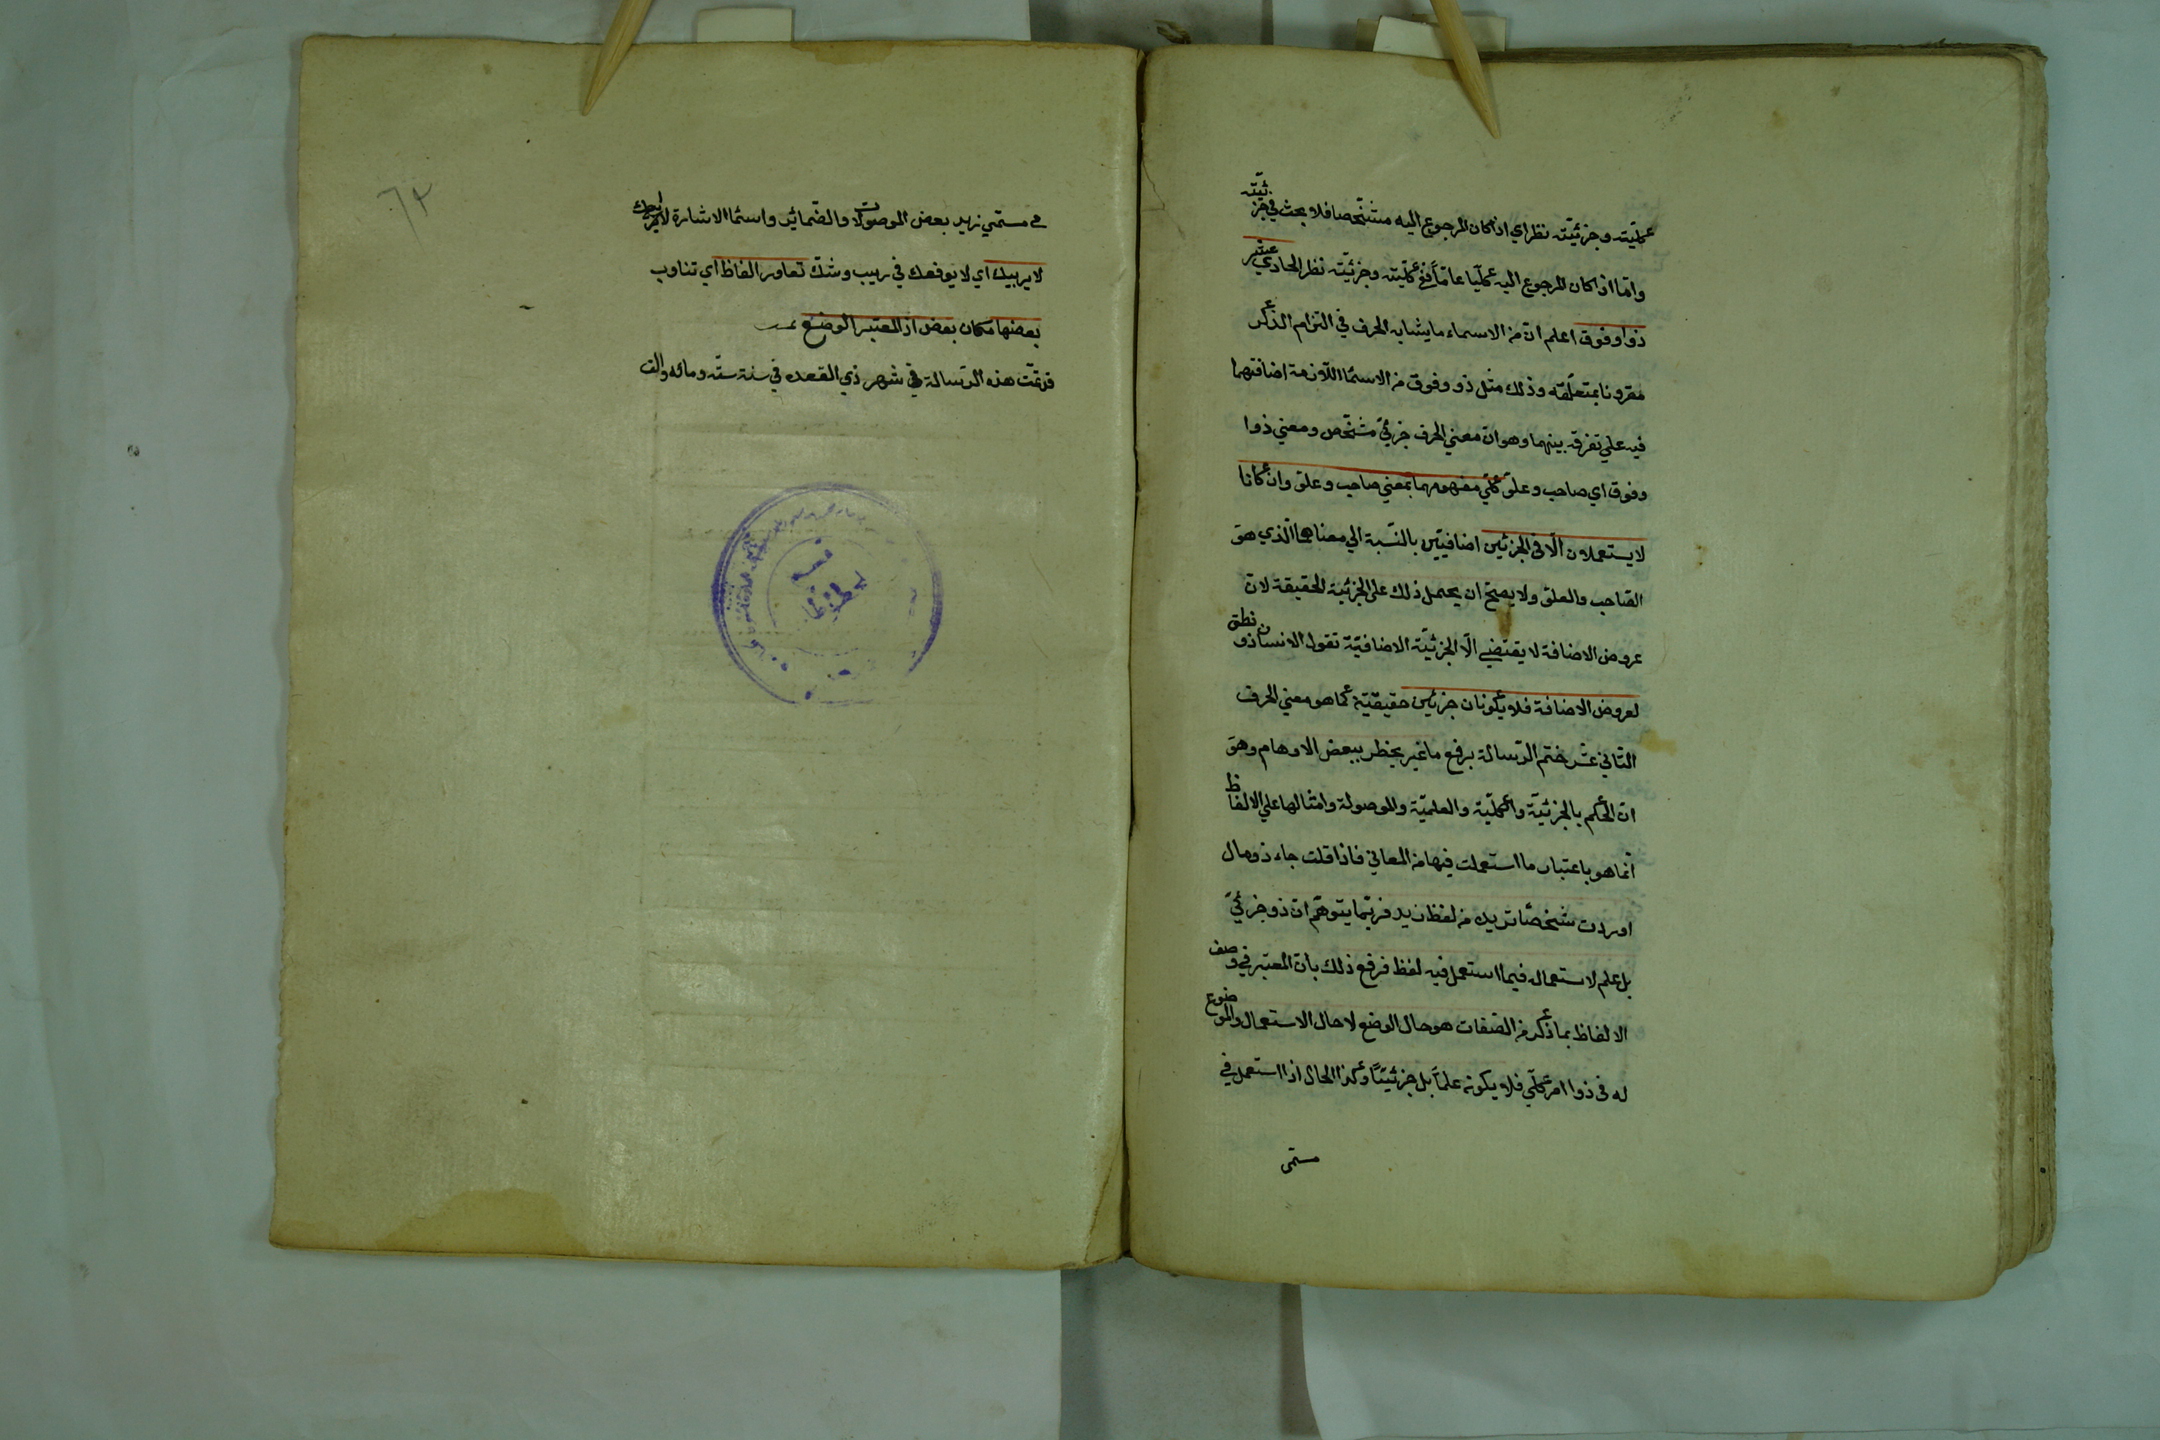 كليّته وجزئيّته نظر اي اذا كان المرجوع اليه متشخّصا فلا بحث في جزئيّته
وامّا اذا كان المرجوع اليه كليّا عامّاً ففي كليّته وجزئيّته نظر الحادي عشر
ذو وفوق اعلم انّ من الاسماء ما يشابه الحرف في التزام الذكر
مقرونا بمتعلّقه وذلك مثل ذو وفوق من الاسما اللّازمة اضافتهما
فيه علي تفرقة بينهما وهو انّ معني الحرف جزئيّ مشخّص ومعني ذوا
وفوق اي صاحب وعلوّ كلّي مفهومهما بمعني صاحب وعلوّ وان كانا
لا يستعملان الّا في الجزئين اضافيّين بالنّسبة الي معناهما الّذي هو
الصّاحب والعلوّ ولا يصحّ ان يحمل ذلك علي الجزئية الحقيقة لانّ
عروض الاضافة لا يقتضي الّا الجزئيّة الاضافيّة تقول الانسان ذو نطق
لعروض الاضافة فلا يكونان جزئين حقيقيّة كما هو معني الحرف
الثّاني عشر ختم الرّسالة برفع ما غير يخطر ببعض الاوهام وهو
انّ الحكم بالجزئيّة والكليّة والعلميّة والموصولة وامثالها علي الالفاظ
انّما هو باعتبار ما استعملت فيها من المعاني فاذا قلت جاء ذو مال
اوردت شخصّا تريد من لفظ زيد فربّما يتوهّم انّ ذو جزئيّ
بل علم لاستعماله فيما استعمل فيه لفظ فرفع ذلك بانّ المعتبر في وصف
الالفاظ بما ذكر من الصّفات هو حال الوضع لا حال الاستعمال والموضوع
له في ذوا امر كلّي فلا يكونه علماً بل جزئيّتاً وكذا الحال اذا استعمل في
مسمّي
مسمّي زيد بعض الموصولات والضّمائر واسما الاشارة
لا يريبك اي لا يوقعك في ريب وشكّ تعاور الفاظ اي تناوب
بعضها مكان بعض اذ المعتبر الوضع
قد تمّت هذه الرّسالة في شهر ذي القعده في سنة ستّه ومائه والف
٦٢